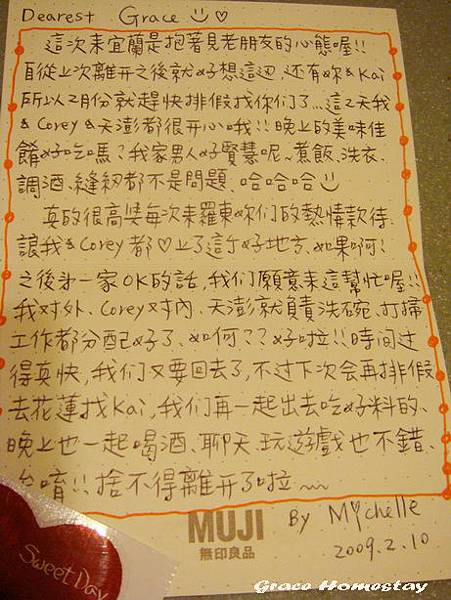 Dearest Grace
這次來宜蘭是抱著見老朋友的心態喔!!
自從上次離開之後就好想這邊、還有妳&Kai
所以2月份就趕快排假找你們了...這2天我
&Corey&天澎都很開心哦!!晚上的美味佳
餚好吃嗎?我家男人好賢慧呢~煮飯、洗衣、
調酒、縫紉都不是問題、哈哈哈
真的很高興每次來羅東妳们的熱情款待、
讓我&Corey都♡上了這个好地方、如果啊!
之後第一家OK的話,我們願意來這幫忙喔!!
我对外、Corey对內、天澎就負責洗碗、打掃
工作都分配好了、如何??好啦!!時間过
得真快,我們又要回去了,不过下次會再排假
去花蓮找Kai,我們再一起出去吃好料的、
晚上也一起喝酒、聊天、玩遊戲也不錯、
唷!!捨不得離開了啦~~
MUJI
無印良品
By Michelle
2009.2.10
Sweet Day
Grace Homestay